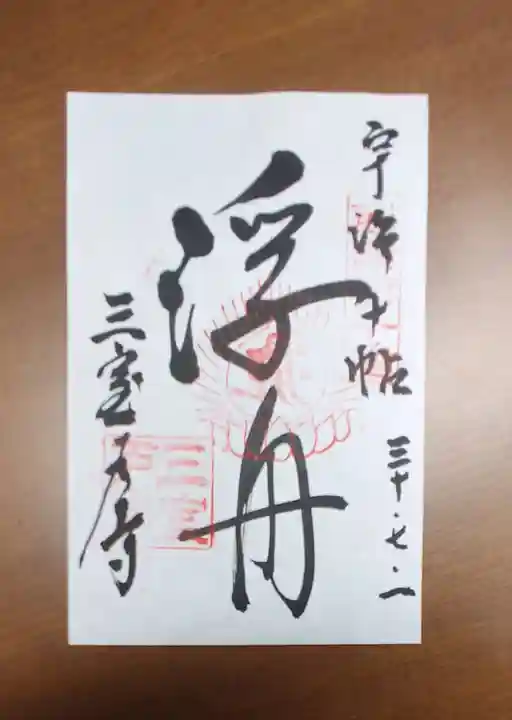 宇治十帖
三十・七・一
浮舟
三室戸寺